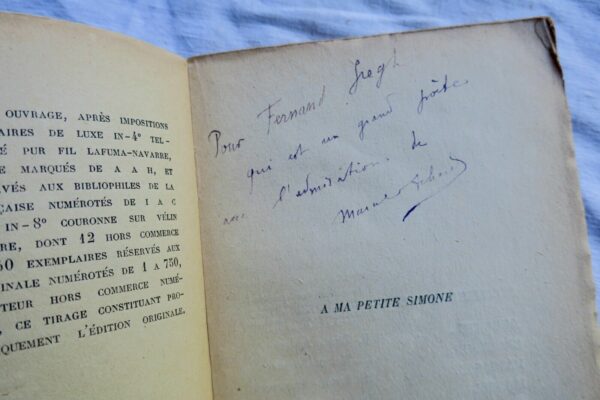 OUVRAGE, APRÈS IMPOSITIONS
AIRES DE LUXE IN-4º TEL-
É PUR FIL LAFUMA-NAVARRE,
E MARQUÉS DE A A H, ET
RVÉS AUX BIBLIOPHILES DE LA
ÇAISE NUMÉROTÉS DE I A C
IN-8º COURONNE SUR VÉLIN
RRE, DONT 12 HORS COMMERCE
50 EXEMPLAIRES RÉSERVÉS AUX
IGINALE NUMÉROTÉS DE 1 A 750,
TEUR HORS COMMERCE NUMÉ-
, CE TIRAGE CONSTITUANT PRO-
QUEMENT L'ÉDITION ORIGINALE.
Pour Fernand Gregh
qui est un grand poète
avec l'admiration de
A MA PETITE SIMONE